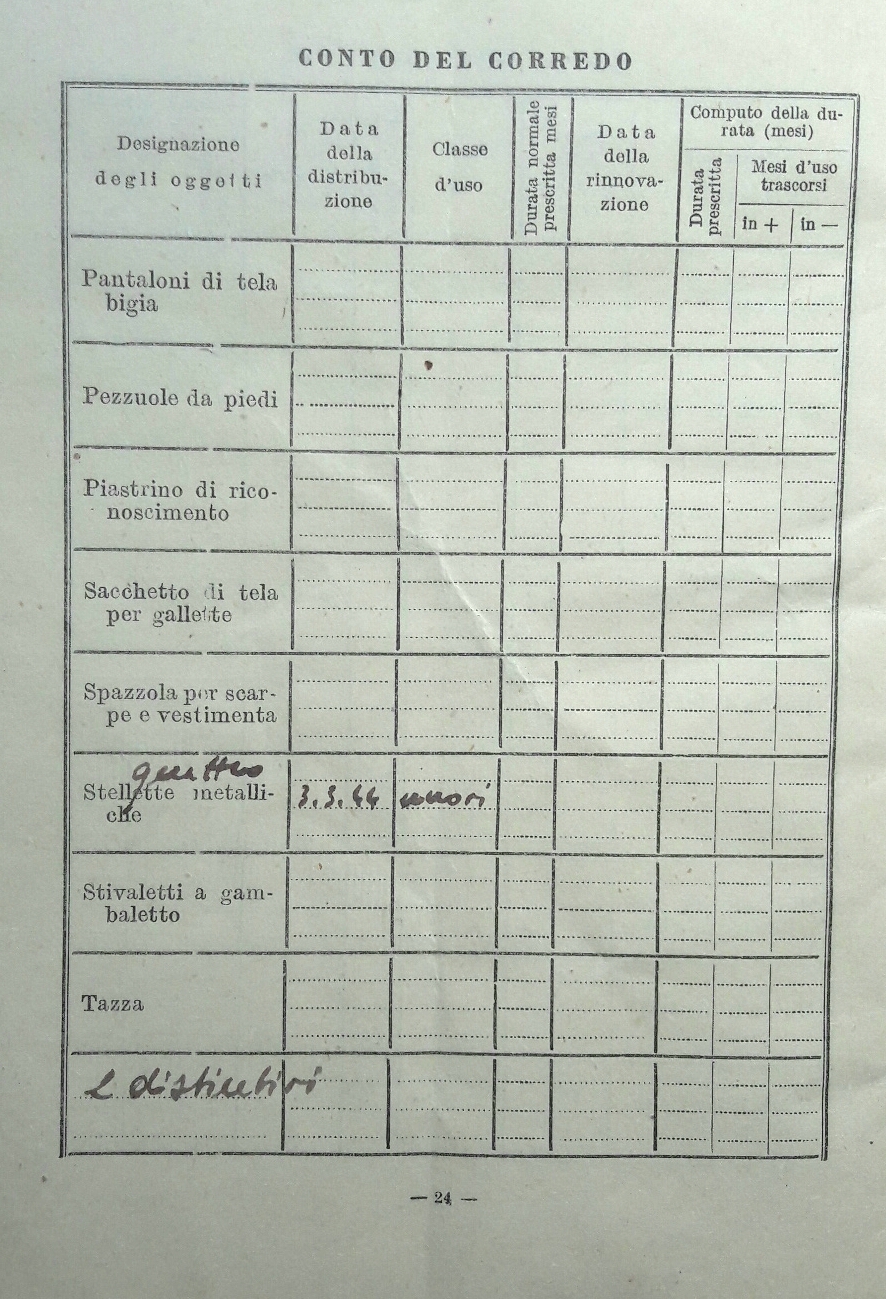 CONTO DEL CORREDO
Designazione
degli oggetti
Data
della
distribu-
zione
Classe
d'uso
Durata normale
prescritta mesi
Data
della
rinnova-
zione
Computo della du-
rata (mesi)
Durata
prescritta
Mesi d'uso
trascorsi
in +
in —
Pantaloni di tela
bigia
Pezzuole da piedi
Piastrino di rico-
noscimento
Sacchetto di tela
per gallette
Spazzola per scar-
pe e vestimenta
quattro
Stellette metalli-
che
3.3.44 nuovi
Stivaletti a gam-
baletto
Tazza
2 distintivi
— 24 —